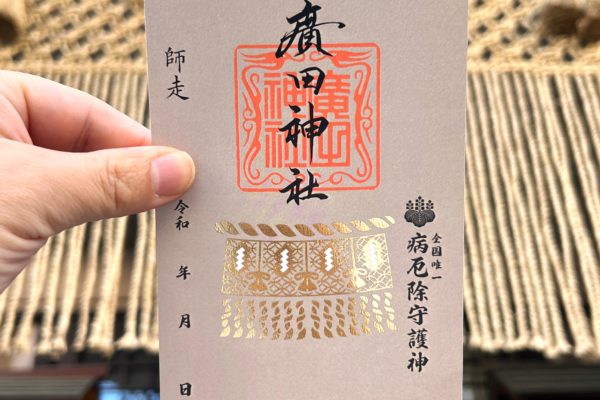 全国唯一
病厄除守護神
廣田神社
廣田
神社
師走
令和 年 月 日